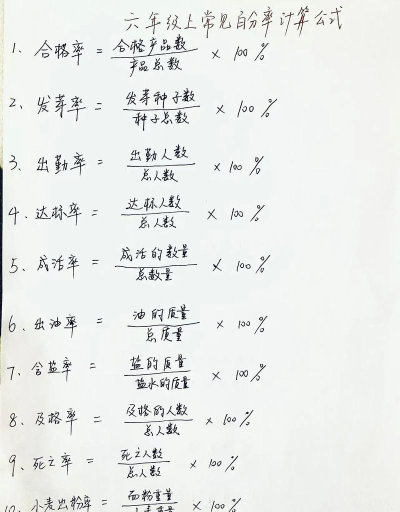 六年级上常见百分率计算公式
1. 合格率 = 合格产品数/产品总数 × 100%
2. 发芽率 = 发芽种子数/种子总数 × 100%
3. 出勤率 = 出勤人数/总人数 × 100%
4. 达标率 = 达标人数/总人数 × 100%
5. 成活率 = 成活的数量/总数量 × 100%
6. 出油率 = 油的质量/总质量 × 100%
7. 含盐率 = 盐的质量/盐水的质量 × 100%
8. 及格率 = 及格的人数/总人数 × 100%
9. 死亡率 = 死亡人数/总人数 × 100%
10. 小麦出粉率 = 面粉重量/ × 100%